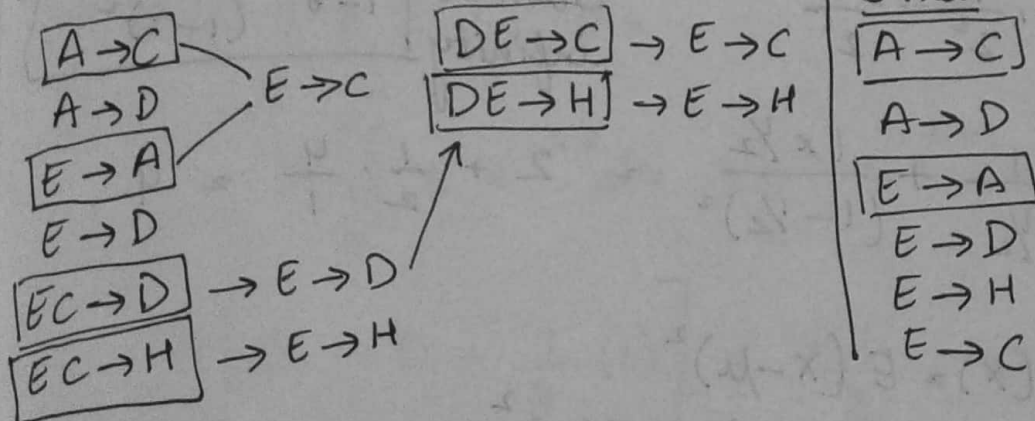 A → C
A → D
E → A
E → D
EC → D → E → D
EC → H → E → H
E → C
DE → C → E → C
DE → H → E → H
A → C
A → D
E → A
E → D
E → H
E → C